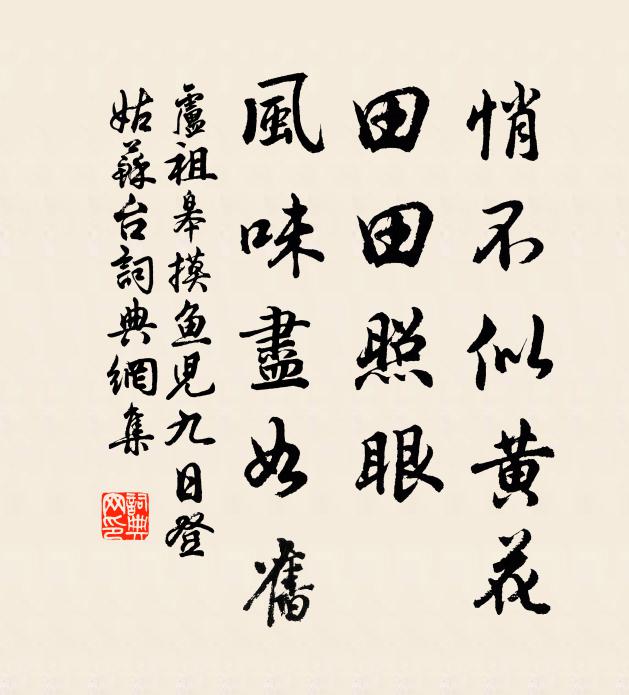 悄不似黄花
田田照眼
風味盡如舊
盧祖皋摸魚児九日登
姑蘇台詞典網集
詞典网印